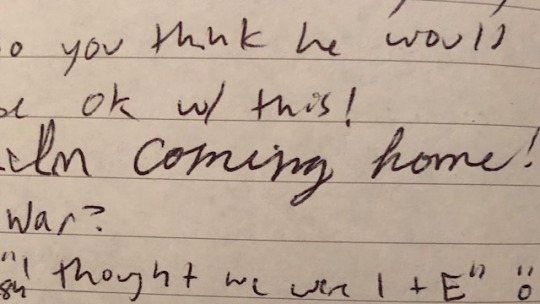 o you think he would
be ok w/ this!
I'm coming home!
War?
"I thought we were 1 + E"